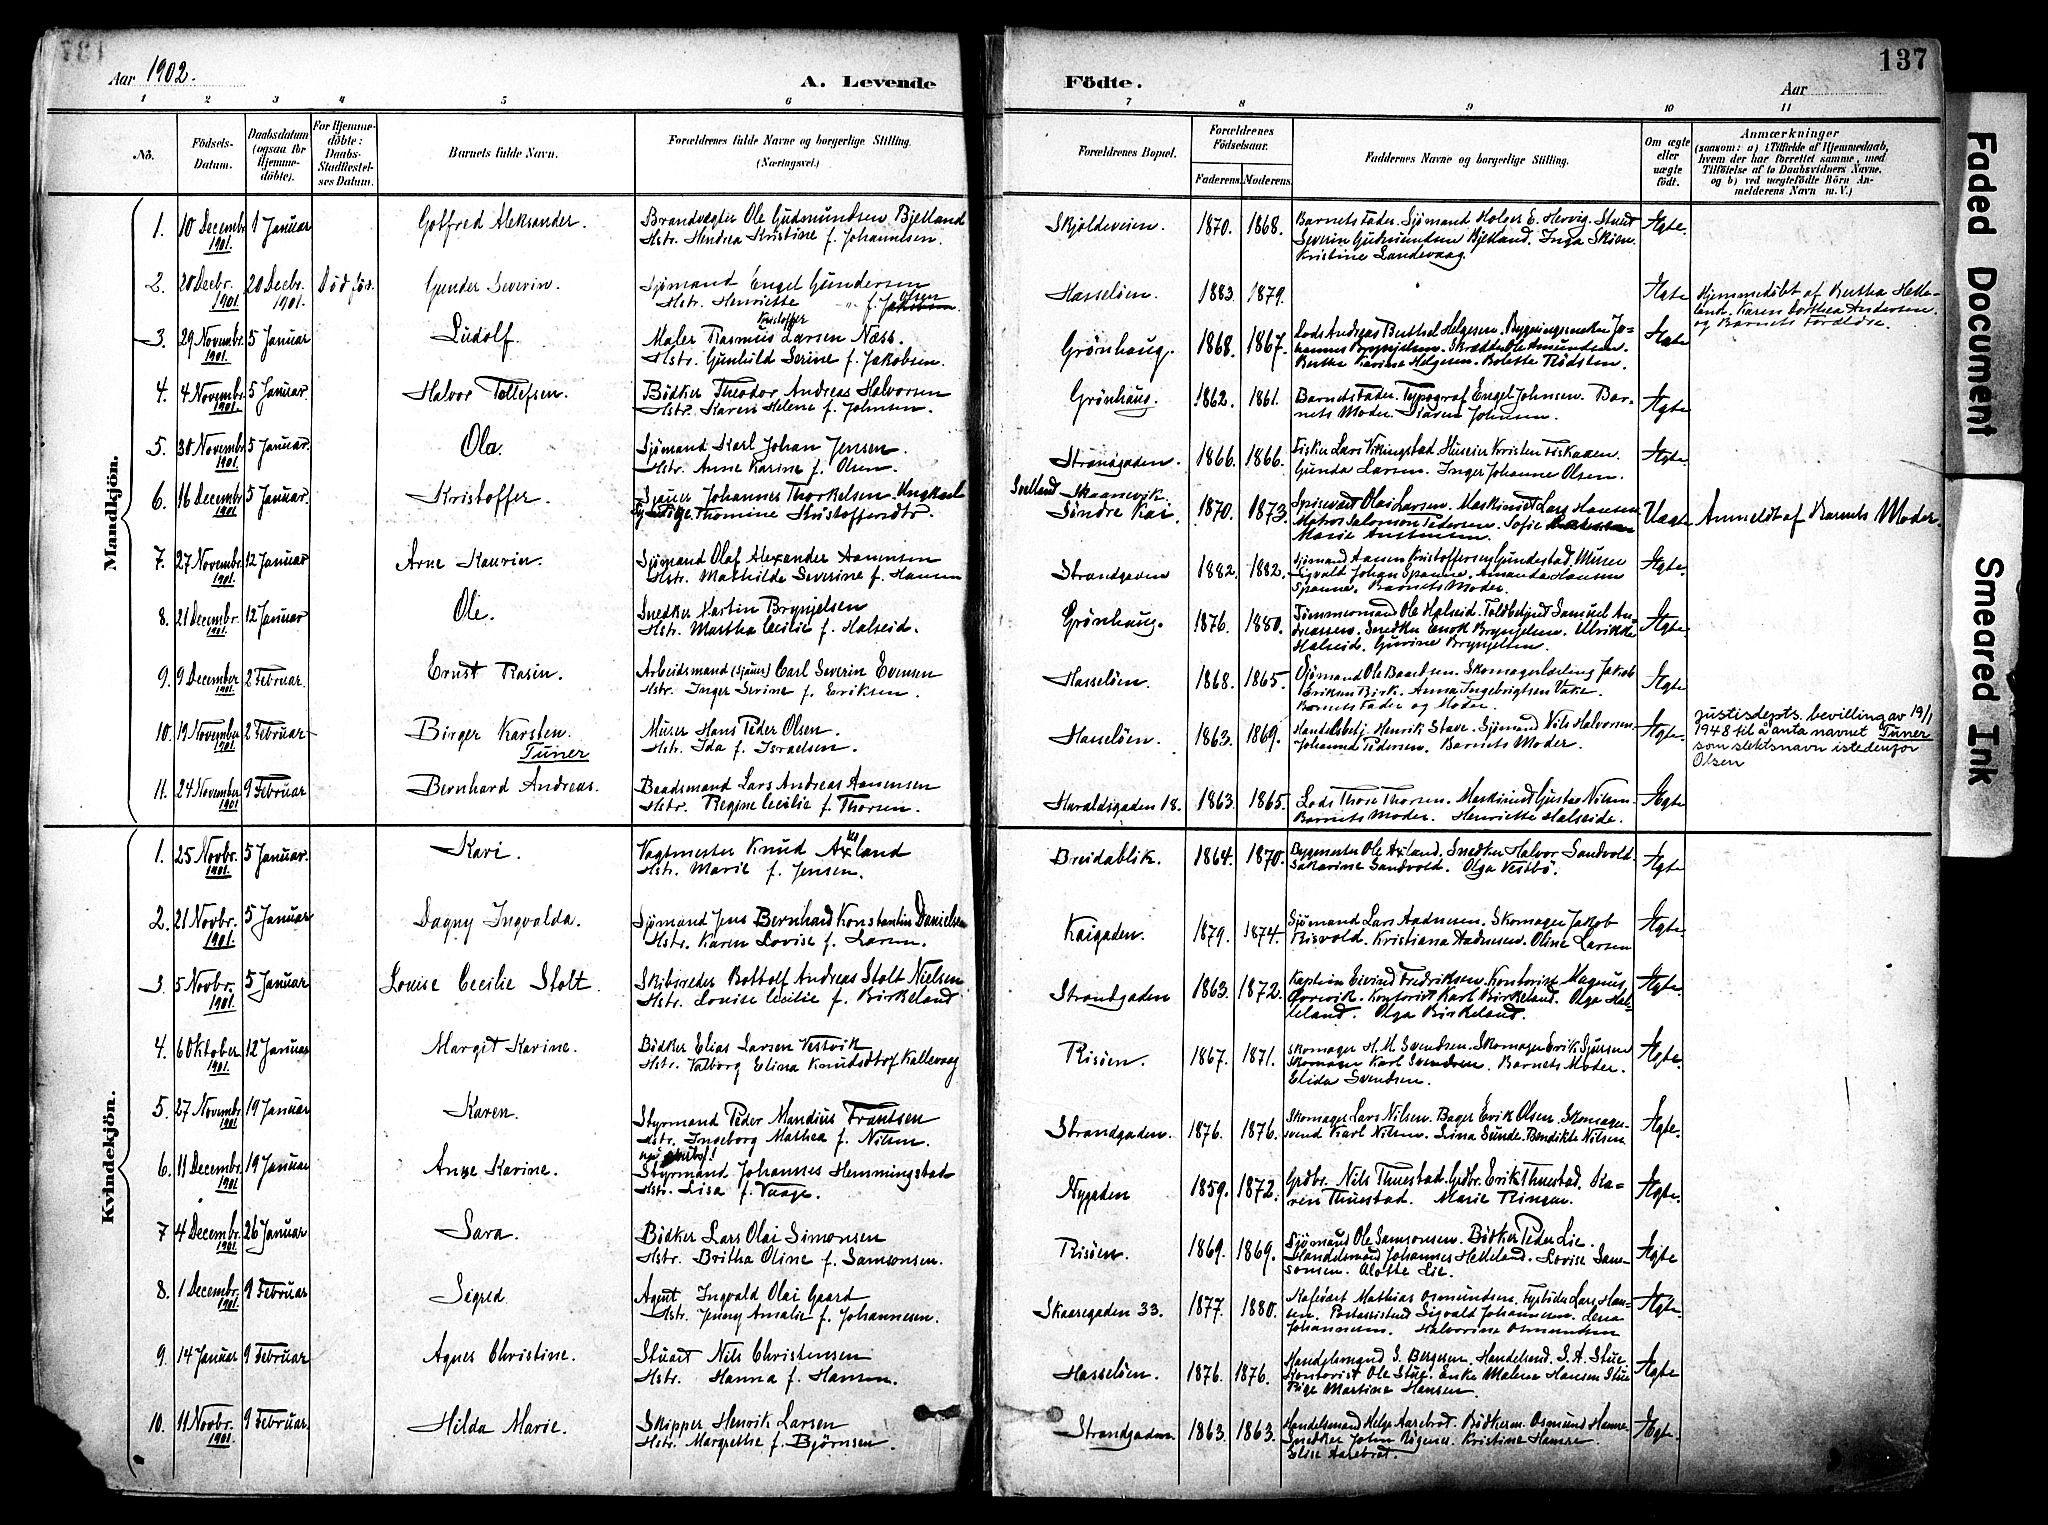 Aar 1902.
A. Levende
Födte.
137
Aar
1 2 3 4 5 6 7 8 9 10 11
No.
Födsels-Datum.
Daabsdatum (ogsaa for Hjemme-döbte).
For Hjemme-döbte: Daabs-Stadfestel-ses Datum.
Barnets fulde Navn.
Forældrenes fulde Navne og borgerlige Stilling. (Næringsvei.)
Forældrenes Bopæl.
Forældrenes Födselsaar.
Faderens. Moderens.
Faddernes Navne og borgerlige Stilling.
Om ægte eller uægte födt.
Anmærkninger
(saasom: a) i Tilfælde af Hjemmedaab, hvem der har forrettet samme, med Tilföielse af to Daabsvidners Navne, og b) ved uægtefödte Börn Anmelderens Navn m. V.)
Mandkjön.
1. 10 Decembr. 1901. 1 Januar Gotfred Aleksander. Brandvægter Ole Gudmundsen Bjelland Hstr. Hendrea Kristine f. Johannesen. Skjoldeveien. 1870. 1868. Barnets Fader. Sjømand Holger E. Hervig. Severin Gudmundsen Bjelland. Inga Skien. Kristine Landevaag. Ægte.
2. 20 Decbr. 1901. 20 Decbr. 1901. Gunder Severin. Sjømand Engel Gundersen Hstr. Henriette f. Olsen Hasseløen. 1883. 1879. Ægte Hjemmedøbt af Bertha Helleland. Karen Dorthea Andersen. og Barnets Forældre.
3. 29 Novembr. 1901. 5 Januar Ludolf. Maler Rasmus Kristoffer Larsen Næss. Hstr. Gunhild Serine f. Jakobsen. Grønhaug. 1868. 1867. Lods Andreas Berthel Helgesen. Johannes Brynjelsen. Skrædder Ole Amundsen. Berthe Karine Helgesen. Bolette Ægte
4. 4 Novembr. 1901. 5 Januar Halvor Tollefsen. Bødker Theodor Andreas Halvorsen Hstr. Karen Helene f. Johnsen. Grønhaug. 1862. 1861. Barnets Fader. Typograf Engel Johnsen. Barnets Moder. Karen Johnsen. Ægte
5. 30 Novembr. 1901. 5 Januar. Ola. Sjømand Karl Johan Jensen. Hstr. Anne Karine f. Olsen. Strandgaden. 1866. 1866. Fisker Lars Vikingstad. Huseier Kristen Fiskaaen. Gunda Larsen. Inger Johanne Olsen. Ægte.
6. 16 Decembr. 1901. 5 Januar. Kristoffer. Sjauer Johannes Thorkelsen. Ungkarl Pige Thomine Kristoffersdtr. Skaanevik. Søndre Kai. 1870. 1873. Spisevært Olai Larsen. Maskinist Lars Hansen Matros Salomon Pedersen. Sofie Marie Uægte Anmeldt af Barnets Moder.
7. 27 Novembr. 1901. 12 Januar Arne Kaurin. Sjømand Olaf Alexander Aanensen Hstr. Mathilde Severine f. Hansen Strandgaden 1882. 1882. Sjømand Aanen Kristoffersen Gundestad. Murer Sigvald Johan Spanne. Amanda Hansen Spanne. Barnets Moder. Ægte.
8. 21 Decembr. 1901. 12 Januar Ole. Snedker Nartin Brynjelsen Hstr. Martha Cecilie f. Halseid. Grønhaug. 1876. 1880. Tømmermand Ole Halseid. Toldbetjent Samuel Andreassen. Snedker Enok Brynjelsen. Ulrikke Halseid. Gurine Brynjelsen. Ægte.
9. 9 December 1901. 2 Februar. Ernst Rasin. Arbeidsmand (Sjauer) Carl Severin Evensen Hstr. Inger Serine f. Eriksen. Hasseløen. 1868. 1865. Sjømand Ole Baardsen. Skomagerlærling Jakob Eriksen Birk. Anna Ingebrigtsen Vake. Barnets Fader og Moder. Ægte
10. 19 November 1901. 2 Februar Birger Karsten. Tuner Murer Hans Peder Olsen. Hstr. Ida f. Israelsen. Hasseløen. 1863. 1869. Handelsbetj. Henrik Stave. Sjømand Nils Halvorsen. Johanna Pedersen. Barnets Moder. Ægte. Justisdepts. bevilling av 19/1 1948 til å anta navnet Tuner som slektsnavn istedenfor Olsen
11. 24 November 1901 9 Februar Bernhard Andreas. Baadsmand Lars Andreas Aanensen Hstr. Regine Cecilie f. Thorsen. Haraldsgaden 18. 1863. 1865. Lods Thore Thorsen. Maskinist Gustav Nilsen. Barnets Moder. Henriette Halseide. Ægte
Kvindekjön.
1. 25 Novbr. 1901. 5 Januar. Kari. Vagtmester Knud Axland Hstr. Marie f. Jensen. Breidablik. 1864. 1870. Bygmester Ole Axland. Snedker Halvor Sandvold. Sakarine Sandvold. Olga Vestbø. Ægte
2. 21 Novbr. 1901. 5 Januar Dagny Ingvalda. Sjømand Jens Bernhard Konstantin Danielsen Hstr. Karen Lovise f. Larsen. Kaigaden. 1879. 1874. Sjømand Lars Aadnesen. Skomager Jakob Risvold. Kristiana Aadnesen. Oline Larsen Ægte.
3. 5 Novbr. 1901. 5 Januar Louise Cecilie Stolt. Skibsreder Bottolf Andreas Stolt Nielsen Hstr. Louise Cecilie f. Birkeland Strandgaden 1863. 1872. Kaptein Eivind Fredriksen. Kontorist Magnus Kontorist Karl Birkeland. Olga Helleland. Olga Birkeland. Ægte.
4. 6 Oktober 1901. 12 Januar Margit Karine. Bødker Elias Larsen Vestvik Hstr. Valborg Elina Knudsdtr f Kallevaag Risøen. 1867. 1871. Skomager H. M. Svendsen. Skomager Erik Sjursen Skomager Karl Svendsen. Barnets Moder. Elida Svendsen. Ægte.
5. 27 Novembr. 1901 19 Januar Karen. Styrmand Peder Mandius Frantsen Hstr. Ingeborg Mathea f. Nilsen. Strandgaden. 1876. 1876. Skomager Lars Nilsen. Bager Erik Olsen. Skomagersvend Karl Nilsen. Lina Sunde. Bendikte Nilsen Ægte.
6. 11 Decembr. 1901 19 Januar Anne Karine. Styrmand Johannes Hemmingstad Hstr. Lisa f. Vaage. Nygaden 1859. 1872. Grdbr. Nils Thuestad. Grdbr. Erik Thuestad. Karen Thuestad. Marie Ægte.
7 4 Decembr. 1901. 26 Januar Sara. Bødker Lars Olai Simonsen Hstr. Britha Oline f. Samsonsen. Risøen. 1869. 1869. Sjømand Ole Samsonsen. Bødker Peder Lie. Handelsmand Johannes Helleland. Lovise Samsonsen. Alotte Lie. Ægte
8. 1 Decembr. 1901. 9 Februar Sigred. Agent Ingvald Olai Gaard Hstr. Jenny Amalie f. Johannesen. Skaaregaden 33. 1877. 1880. Kafévært Mathias Osmundsen. Fyrbøder Lars Hansen. Postassistend Sigvald Johannesen. Lena Johannesen. Halvorine Osmundsen Ægte.
9. 14 Januar 9 Februar Agnes Christine. Stuert Nils Christensen Hstr. Hanna f. Hansen. Hasseløen. 1876. 1876. Handelsmand S. Bergesen. Handelsmd. S. A. Stue Kontorist Ole Stue. Enke Malene Hansen Stue Pige Martine Hansen. Ægte
10. 11 Novbr. 1901. 9 Februar Hilda Marie. Skipper Henrik Larsen Hstr. Margrethe f. Bjørnsen. Strandgaden 1863. 1863. Handelsmand Helge Aarebrot. Osmund Hamre. Snedker John Røgenes. Kristine Hamre. Elise Aarebrot. Ægte.
Faded Document
Smeared Ink